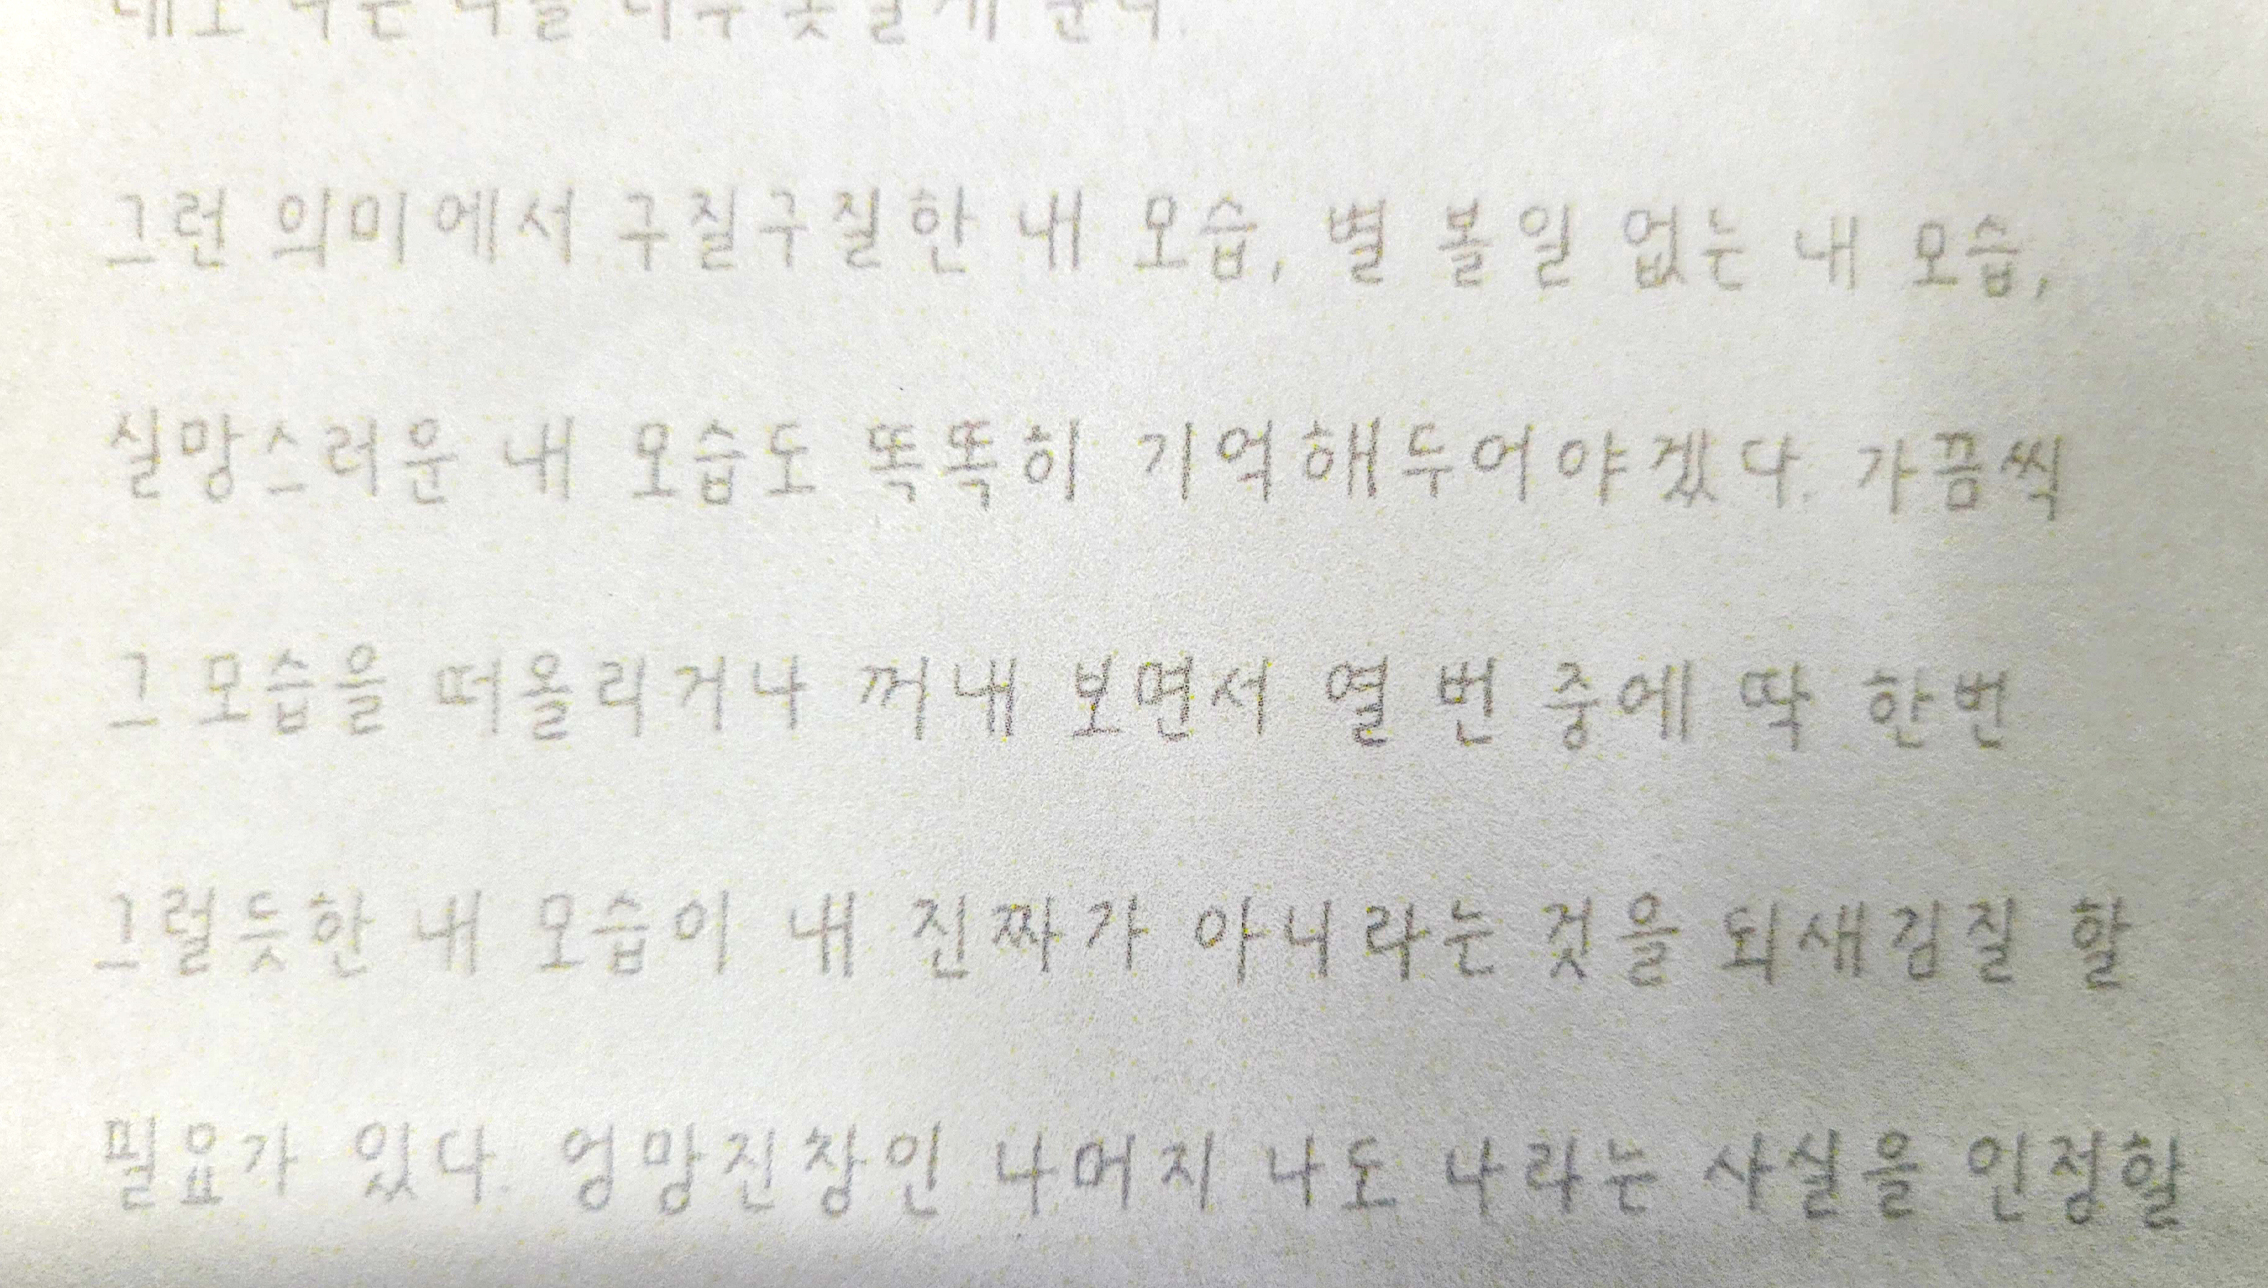 그런 의미에서 구질구질한 내 모습, 별 볼일 없는 내 모습,
실망스러운 내 모습도 똑똑히 기억해두어야겠다. 가끔씩
그 모습을 떠올리거나 꺼내 보면서 열 번 중에 딱 한번
그럴듯한 내 모습이 내 진짜가 아니라는 것을 되새김질 할
필요가 있다. 엉망진창인 나머지 나도 나라는 사실을 인정할